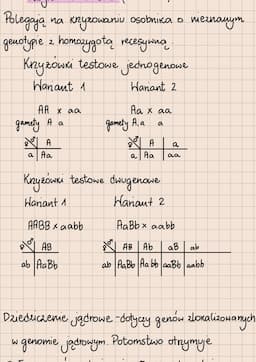 Polegają na krzyżowaniu osobnika o nieznanym
genotypie z homozygotą recesywną
Krzyżówki testowe jednogenowe
Wariant 1 Wariant 2
AA x aa Aa x aa
gamety A a gamety A, a a
A A a
a Aa a Aa aa
Krzyżówki testowe dwugenowe
Wariant 1 Wariant 2
AABB x aabb AaBb x aabb
AB AB Ab aB ab
ab AaBb ab AaBb Aabb aaBb aabb
Dziedziczenie jądrowe - dotyczy genów zlokalizowanych
w genomie jądrowym. Potomstwo otrzymuje